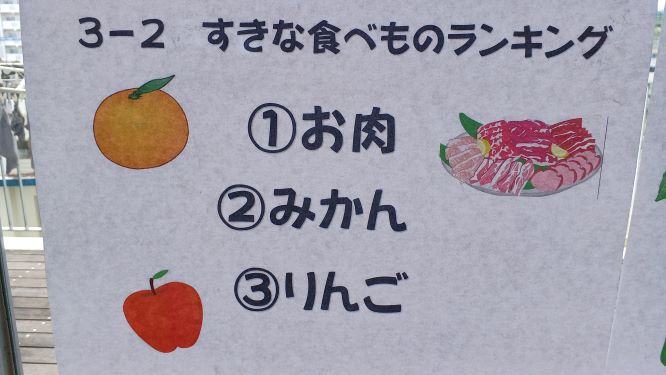 3-2 すきな食べものランキング
①お肉
②みかん
③りんご